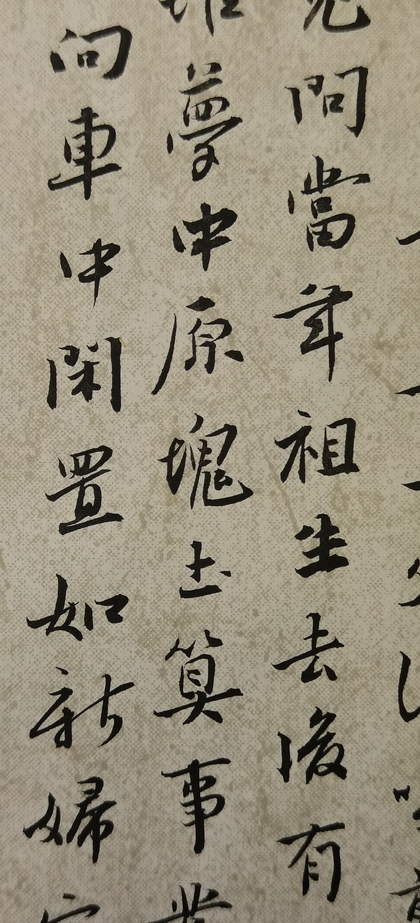 問當年祖生去後有
夢中原塊土算事
向車中閑置如新婦